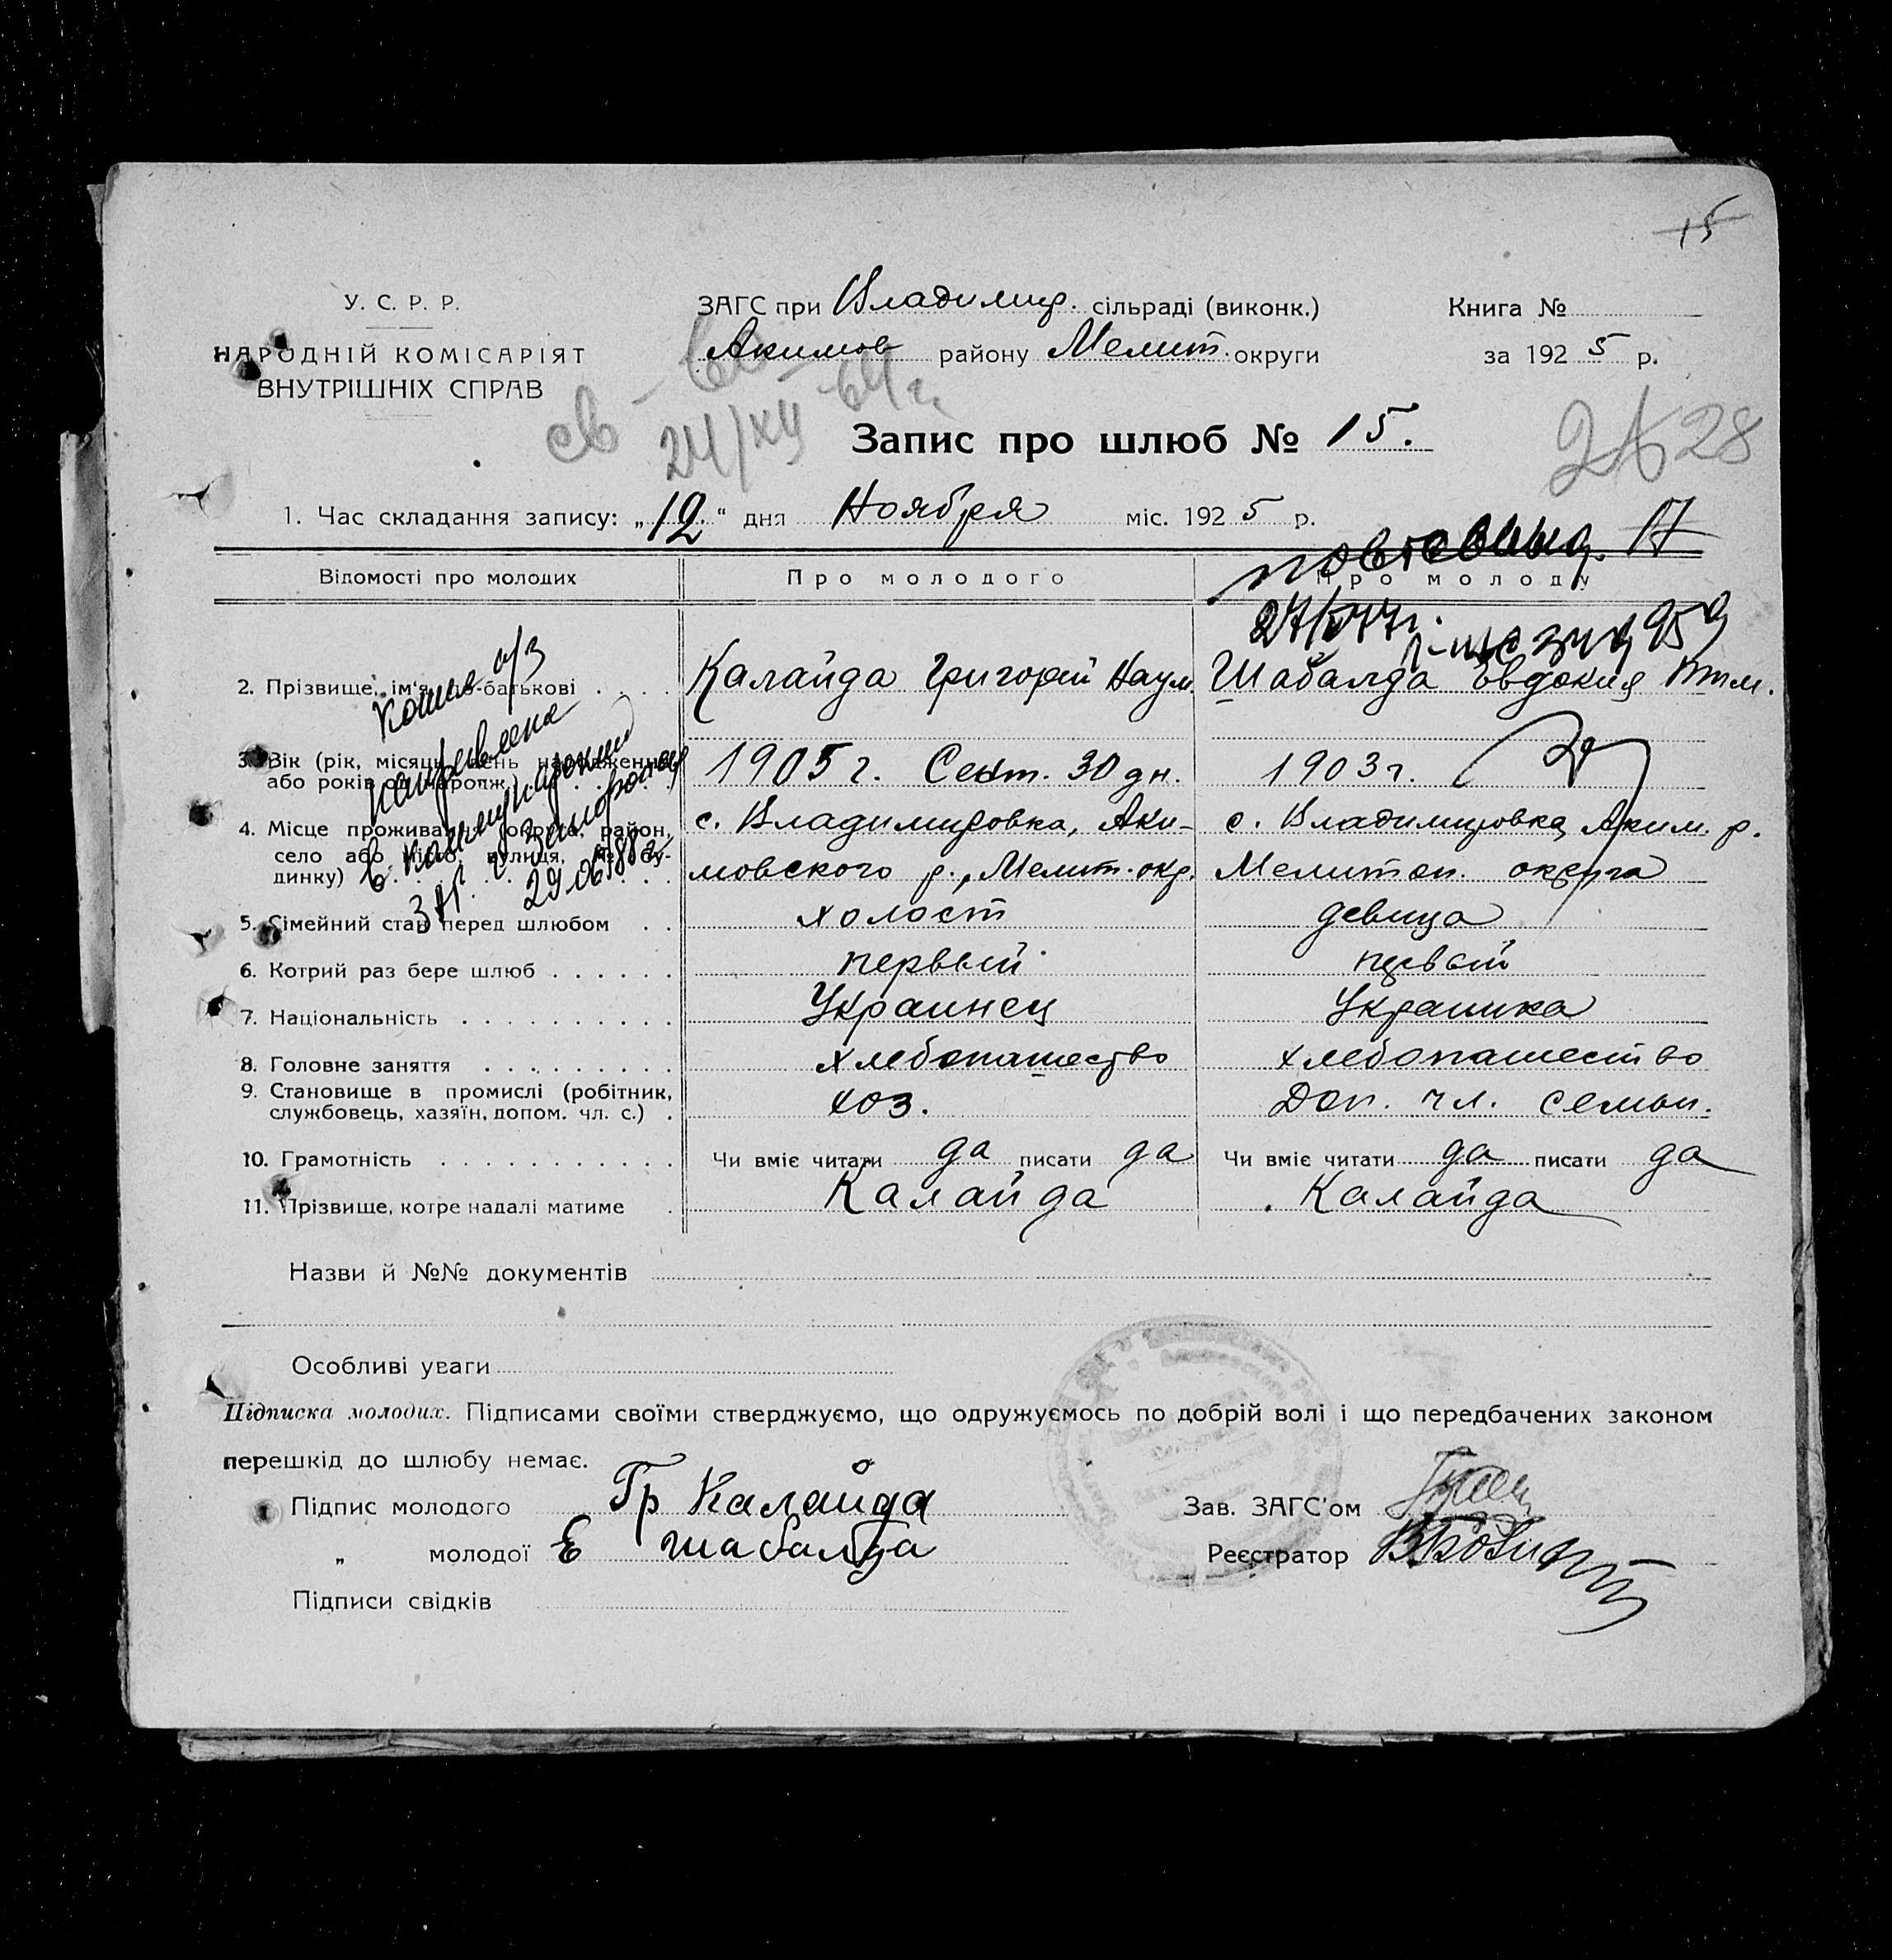 15
У. С. Р. Р.
НАРОДНІЙ КОМІСАРІЯТ
ВНУТРІШНІХ СПРАВ
ЗАГС при Владимир. сільраді (виконк.)
Акимов району Мелит. округи
Книга №
за 1925 р.
24/XII -64 г.
Запис про шлюб № 15.
28
1. Час складання запису: „12“ дня Ноября міс. 1925 р.
Відомості про молодих
Про молодого
Про молоду
2. Прізвище, ім'я, по-батькові Калайда Григорий Наум. Шабалда Евдокия
3. Вік (рік, місяць, день народження 1905 г. Сент. 30 дн. 1903 г.
або років од народж.)
4. Місце проживання (округа, район, с. Владимировка, Аки- с. Владимировка, Аким. р.
село або місто, вулиця, № бу-
динку) мовского р., Мелит. окр. Мелитоп. округа
5. Сімейний стан перед шлюбом холост девица
6. Котрий раз бере шлюб первый первый
7. Національність Украинец Украинка
8. Головне заняття хлебопашество хлебопашество
9. Становище в промислі (робітник,
службовець, хазяїн, допом. чл. с.) хоз. Доп. чл. семьи.
10. Грамотність Чи вміє читати да писати да Чи вміє читати да писати да
11. Прізвище, котре надалі матиме Калайда Калайда
Копия а/з
направлена
29.06.88 г.
Назви й №№ документів
Особливі уваги
Підписка молодих. Підписами своїми стверджуємо, що одружуємось по добрій волі і що передбачених законом
перешкід до шлюбу немає.
Підпис молодого Гр Калайда
„ молодої Е Шабалда
Підписи свідків
Зав. ЗАГС'ом
Реєстратор